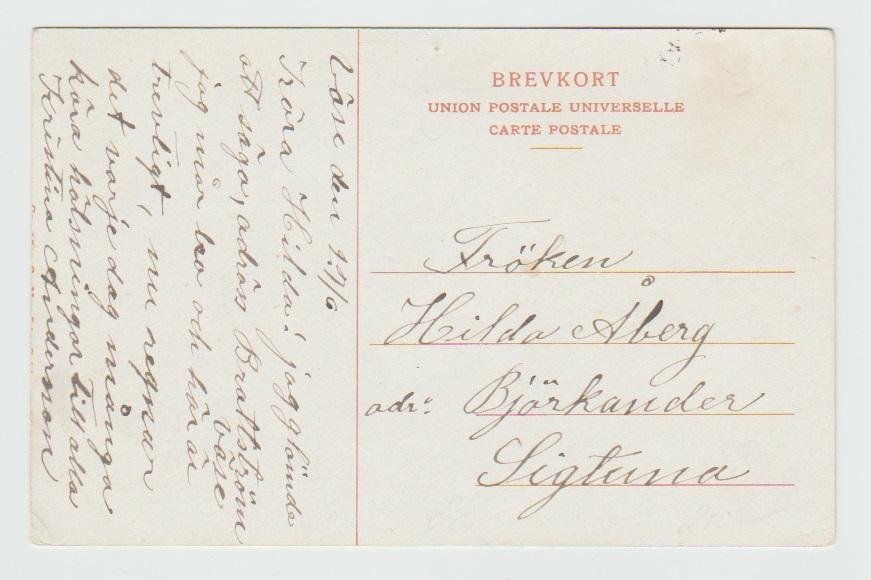 BREVKORT
UNION POSTALE UNIVERSELLE
CARTE POSTALE
Fröken
Hilda Åberg
adr. Björkander
Sigtuna
Väse den
Kära Hilda! jag glömde
att säga, adress Brattström
Väse
jag mår bra och här är
trevligt, nu regnar
det varje dag många
kära hälsningar till alla
Kristina Anderson